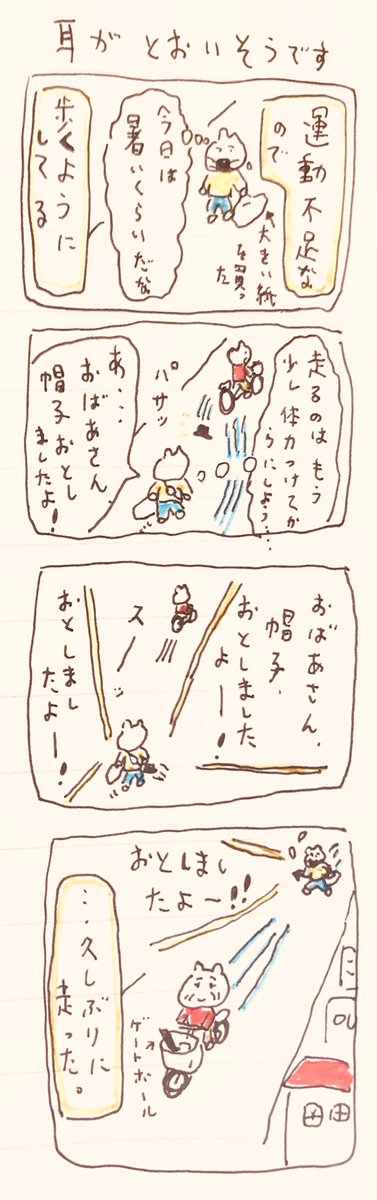 耳が とおいそうです
運動不足な
ので
↑大きい紙
を買っ
た
今日は
暑いくらいだな
歩くように
してる
走るのはもう
少し体力つけてか
らにしよう…
パサッ
あ...
おばあさん
帽子おとし
ましたよ!
おばあさん、
帽子、
おとしました
よー!
スーッ
おとしまし
たよー!
おとしまし
たよ〜!!
ゲートボール
...久しぶりに
走った。